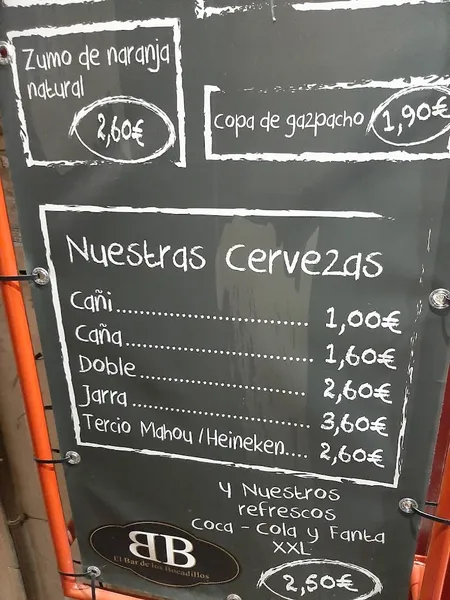 Zumo de naranja
natural
2,60€
Copa de gazpacho 1,90€
Nuestras cervezas
Cañi 1,00€
Caña 1,60€
Doble 2,60€
Jarra 3,60€
Tercio Mahou/Heineken.... 2,60€
y Nuestros
refrescos
Coca - Cola y Fanta
XXL
2,50€
BB
El Bar de los Bocadillos